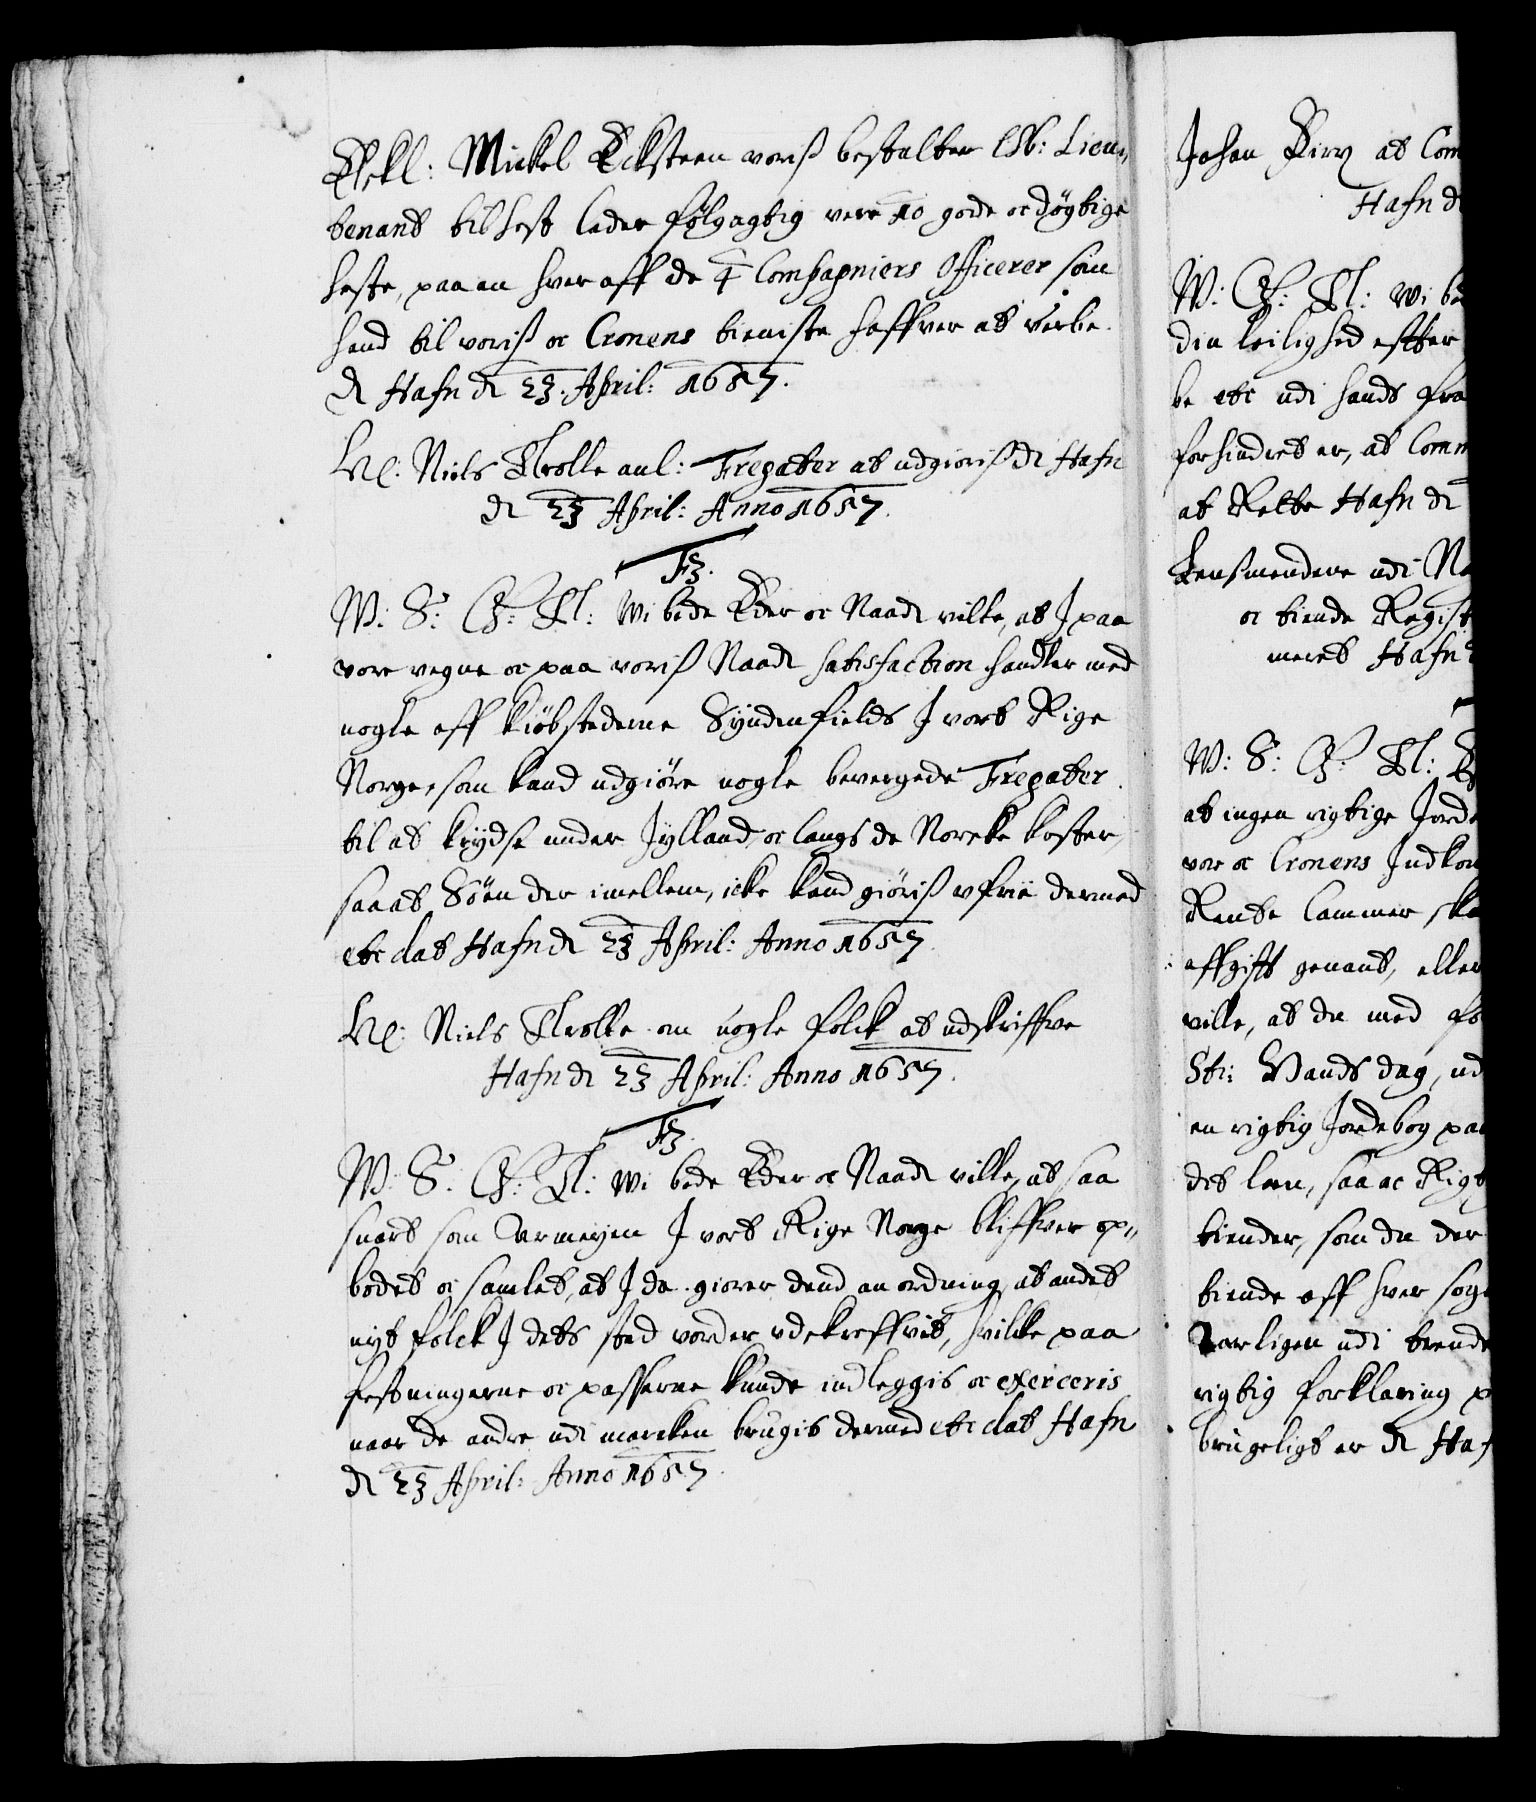 Elskl: Mickel Ecksteen voris bestalter Ob: Lieu„
tenant til Hest lader følgagtig vere 10 gode oc døgtige
heste, paa en hver aff de 4 Compagniers Officerer som
hand til voris oc Cronens tieniste haffver at verbe.
D Hafn d 23. April: 1657.
Hr: Niels Trolle anl: Fregatter at udgiøris D Hafn
d 23 April: Anno 1657.
F3.
W: S: G: T: Wi bede Eder oc Naadt ville, at J paa
vore vegne oc paa voris Naadt satisfaction handler med
nogle aff kiöbstederne Syndenfields J vort Rige
Norge, som kand udgiöre nogle bevergede Fregatter
til at krydse under Jylland, oc langs de Norske koster,
saa at Söen der imellem, icke kand giöris ufrie dermed
etc dat Hafn d 23 April: Anno 1657.
Hr: Niels Trolle om nogle folck at udskriffve
Hafn d 23 April: Anno 1657.
F3.
W: S: G: T: Wi bede Eder oc Naadt ville, at saa
snart som Armeyen J vort Rige Norge bliffver op„
bodet oc samlet, at J da giører dend anordning, at andet
nyt folck J dets sted vorder udskreffvit, hvilcke paa
festningerne oc passerne kunde indleggis oc exerceris
naar de andre udi marcken brugis dermed etc dat Hafn
d 23 April: Anno 1657.
Johan at Com
Hafn d
W: G: T: Wi be
din leilighed effter
be etc udi hands fra
forhindret er, at Comm
at Rette Hafn d
Lensmendene udi No
oc tiende Regist
meret Hafn
W: S: G: T:
at ingen rigtige Jorde
vor oc Cronens Indkom
Rente Cammer ska
affgifft genant, eller
ville, at du med fo
Sti: Hands dag, ud
en rigtig Jordebog paa
dit len, saa oc Rigt
tiender, som du der
tiende aff hver sogn
varligen udi
rigtig forklaring p
brugeligt er D Haf